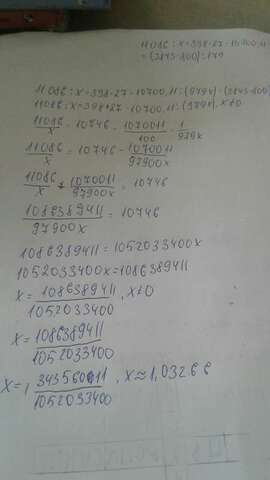 11086 : x = 398 · 27 - 10700,11
= (2845 - 800) : 979
11086 : x = 398 · 27 - 10700,11 : (979x) · (2845-800)
11086 : x = 398 · 27 - 10700,11 : (979x), x≠0
11086/x = 10746 - 1070011/100 · 1/979x
11086/x = 10746 - 1070011/97900x
11086/x + 1070011/97900x = 10746
1086389411/97900x = 10746
1086389411 = 1052033400x
1052033400x = 1086389411
x = 1086389411/1052033400, x≠0
x = 1086389411/1052033400
x = 1 34356011/1052033400, x ≈ 1,03266